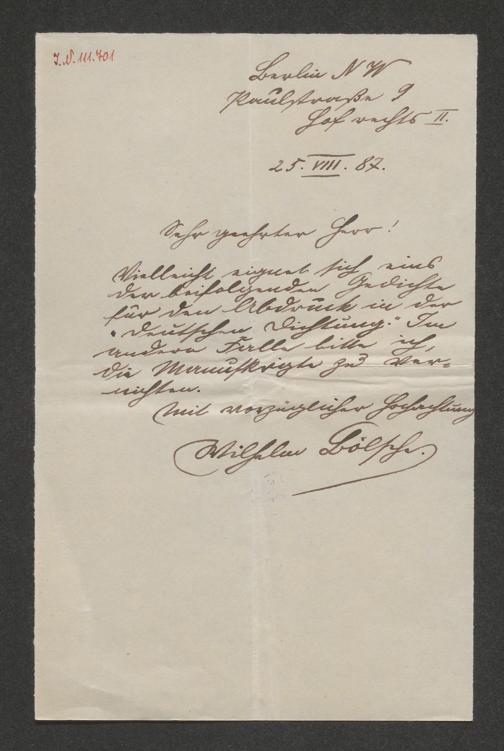 I.N. 111.701
Berlin NW
Paulstraße 9
Hof rechts II.
25. VIII. 87.
Sehr geehrter Herr!
Vielleicht eignet sich eins
der beifolgenden Gedichte
für den Abdruck in der
„Deutschen Dichtung." Im
andern Falle bitte ich,
die Manuskripte zu ver-
nichten.
Mit vorzüglicher Hochachtung
Wilhelm Bölsche.